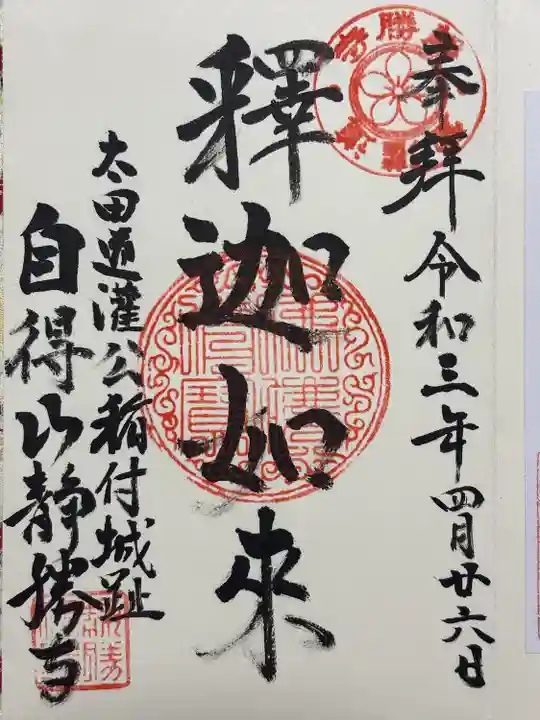 奉拜 令和三年四月廿六日
釋迦如来
太田道灌公稲付城趾
自得山静勝寺